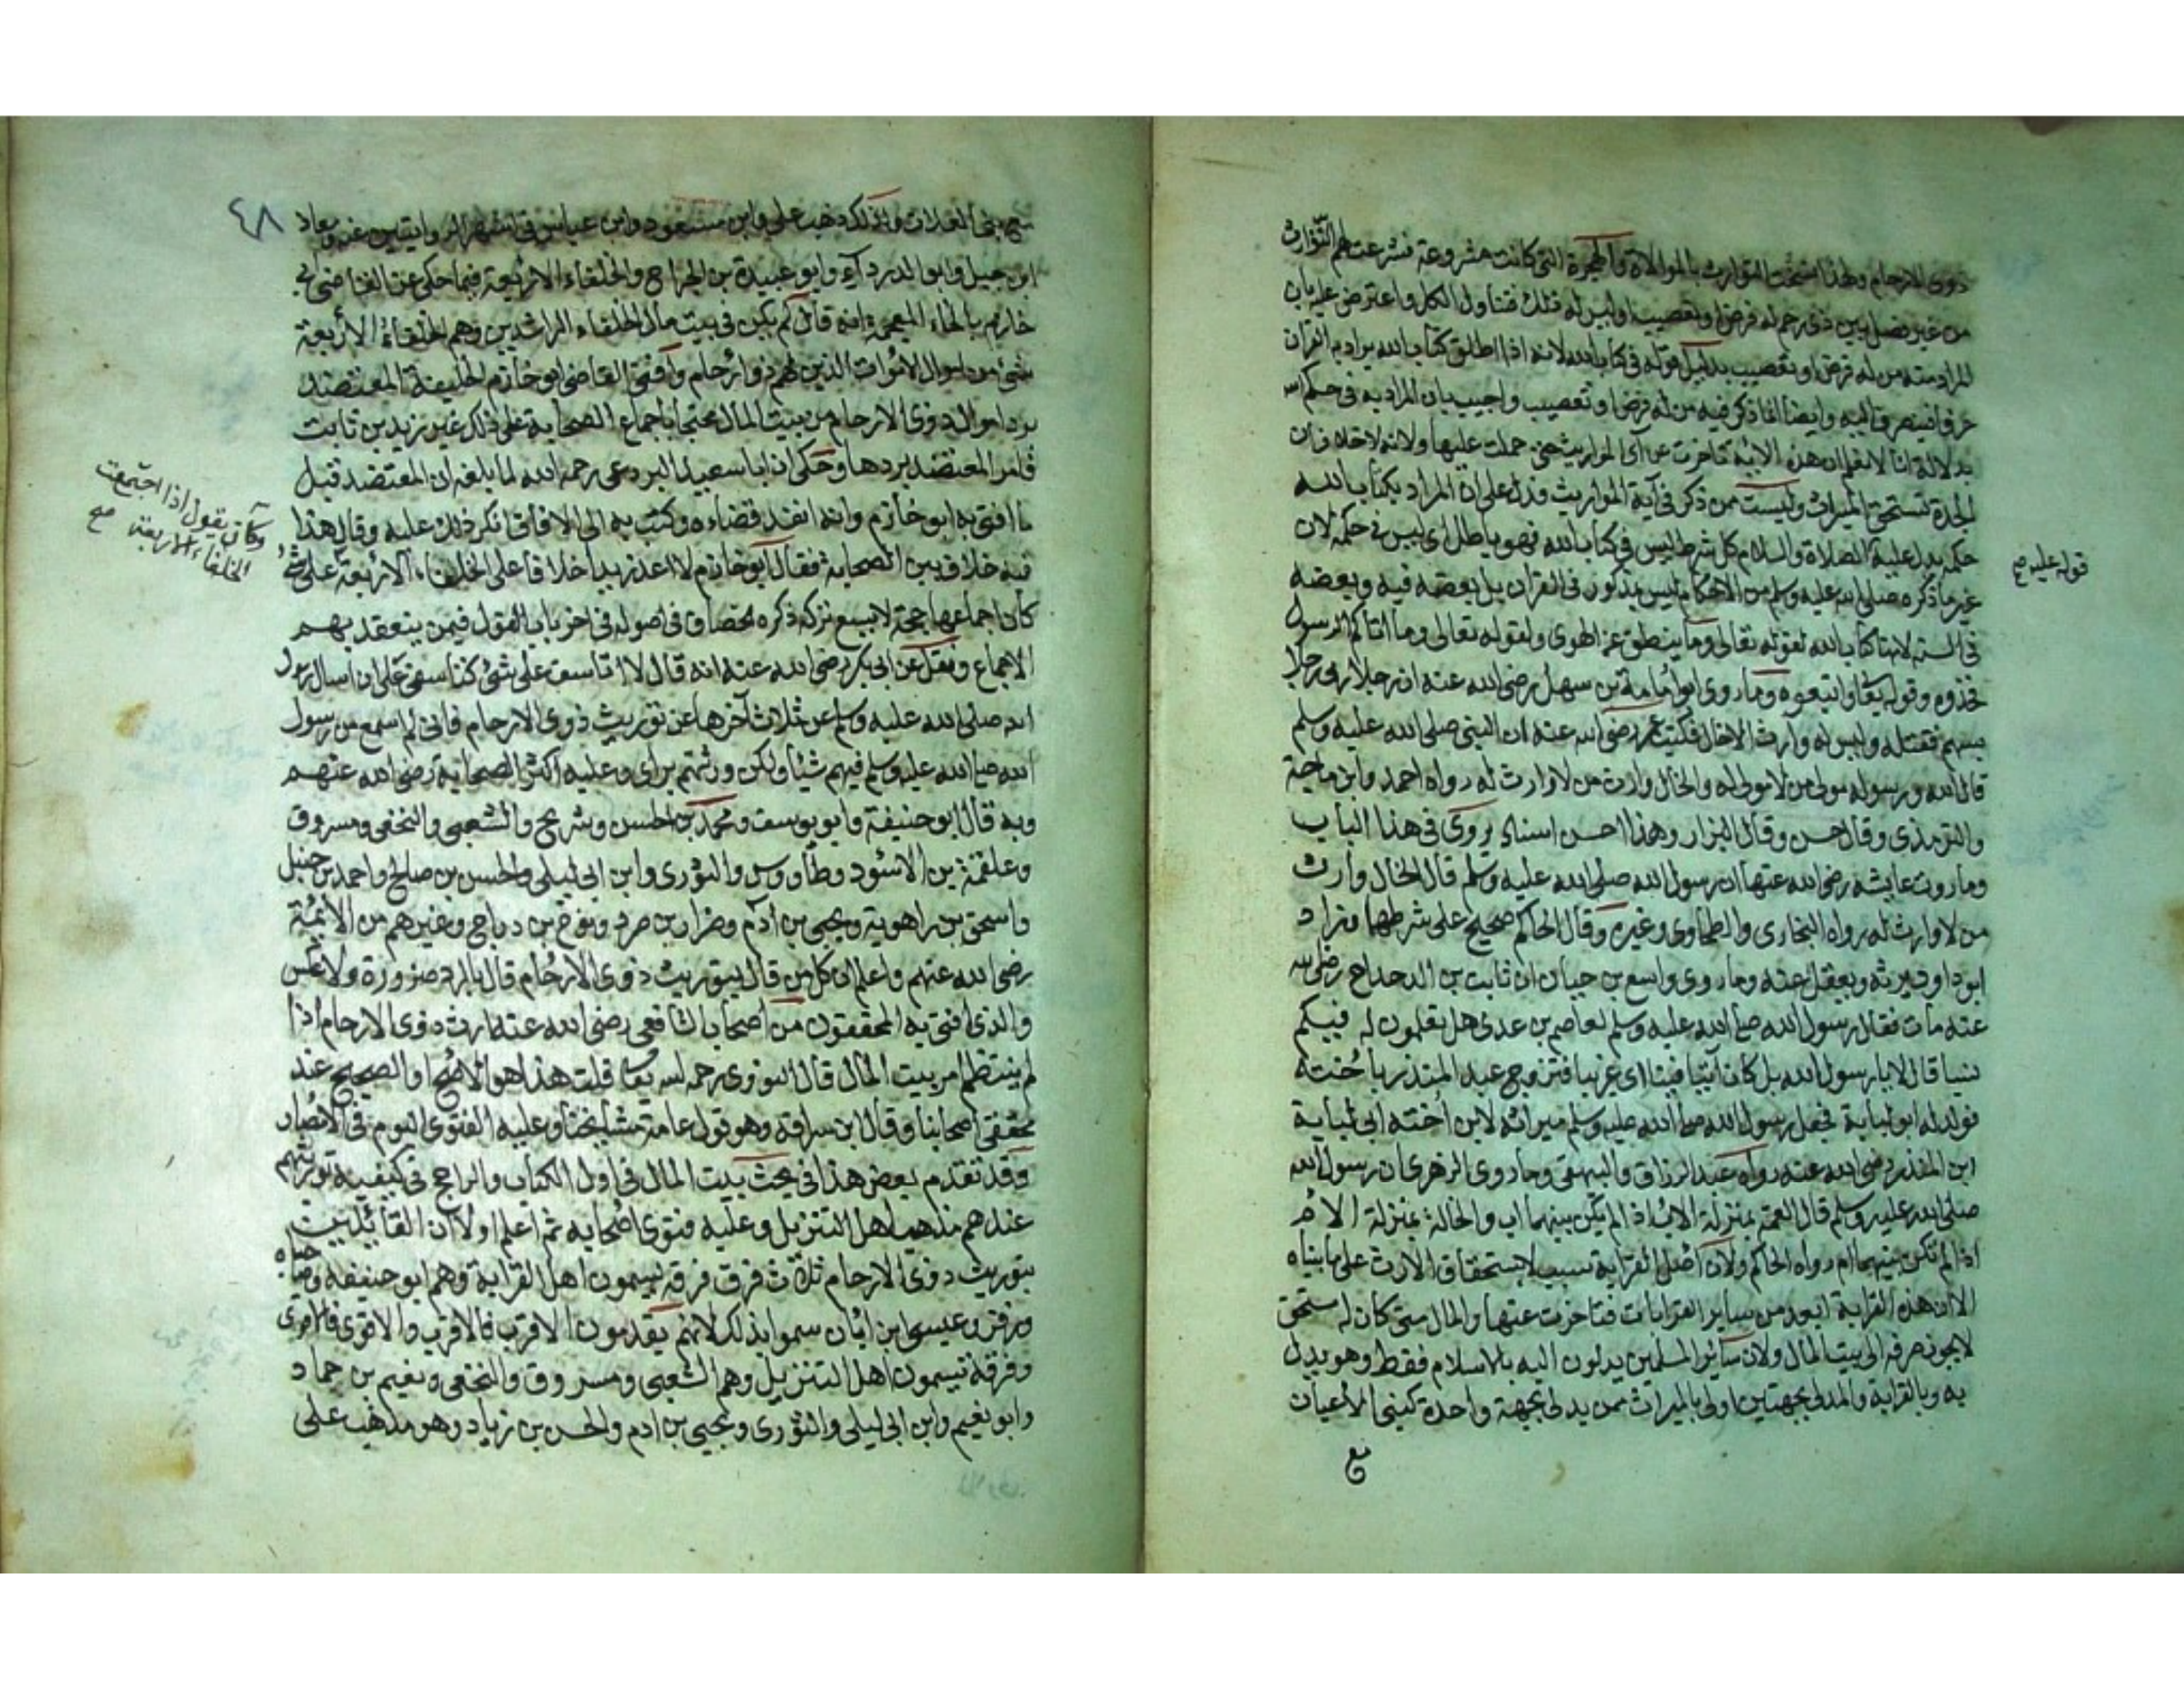 ذوى الارحام ولهذا نسخت التوارث بالموالاة والهجرة التى كانت مشروعة فشرعت لهم التوارث
من غير فصل بين ذى رحم له فرض او تعصيب او ليس له ذلك فتناول الكل واعترض عليه بان
المراد منه من له فرض او تعصيب بدليل قوله فى كتاب الله لانه اذا اطلق كتاب الله يراد به القران
عرفا فينصرف اليه وايضا انما ذكر فيه من له فرض او تعصيب واجيب بان المراد به فى حكم الله
بدلالة انا لا نعلم ان هذه الاية تاخرت عن آى المواريث حتى حملت عليها ولانه لا خلاف ان
الجدة تستحق الميراث وليست ممن ذكر فى آية المواريث فدل على ان المراد بكتاب الله
حكمه يدل عليه الصلاة والسلام كل شرط ليس فى كتاب الله فهو باطل اى ليس فى حكمه لان
قوله عليه صح
غير ما ذكره صلى الله عليه وسلم من الاحكام ليس بمذكور فى القران بل بعضه فيه وبعضه
فى السنه لانها كتاب الله لقوله تعالى وما ينطق عن الهوى ولقوله تعالى وما اتاكم الرسول
فخذوه وقوله تعا واتبعوه وما روى ابو امامة بن سهل رضى الله عنه ان رجلا رمى رجلا
بسهم فقتله وليس له وارث الا خال فكتب عمر رضى الله عنه ان النبى صلى الله عليه وسلم
قال الله ورسوله مولى من لا مولى له والخال وارث من لا وارث له رواه احمد وابن ماجة
والترمذى وقال حسن وقال البزار وهذا احسن اسناد يروى فى هذا الباب
وما روت عايشه رضى الله عنها ان رسول الله صلى الله عليه وسلم قال الخال وارث
من لا وارث له رواه البخارى والطحاوى وغيره وقال الحاكم صحيح على شرطهما وزاد
ابو داود يرثه ويعقل عنه وما روى واسع بن حبان ان ثابت بن الدحداح رضى الله
عنه مات فقال رسول الله صلى الله عليه وسلم لعاصم بن عدى هل تعلمون له فيكم
نسبا قال لا يا رسول الله بل كان آتيا فينا اى غريبا فتزوج عبد المنذر باخته
فولد له ابو لبابة فجعل رسول الله صلى الله عليه وسلم ميراثه لابن اخته ابى لبابة
ابن المنذر رضى الله عنه رواه عبد الرزاق والبيهقى وما روى الزهرى ان رسول الله
صلى الله عليه وسلم قال العمة بمنزلة الاب اذا لم يكن بينهما اب والخالة بمنزلة الام
اذا لم تكن بينهما ام رواه الحاكم ولان اصل القرابة سبب لاستحقاق الارث على ما بيناه
الا ان هذه القرابة ابعد من ساير القرابات فتاخرت عنها والمال متى كان له مستحق
لا يجوز صرفه الى بيت المال ولان سائر المسلمين يدلون اليه بالاسلام فقط وهو يدل
به وبالقرابة والمدلى بجهتين اولى بالميراث ممن يدلى بجهة واحدة كبنى الاعيان
مع
٤٨
مع بنى العلات ولذلك ذهب على وابن مسعود وابن عباس فى اشهر الروايتين عنه ومعاذ
ابن جبل وابو الدرداء وابو عبيدة بن الجراح والخلفاء الاربعة فيما حكى عن القاضى ابى
خازم بالخاء المعجمة انه قال لم يكن فى بيت مال الخلفاء الراشدين وهم الخلفاء الاربعة
شئ من اموال الاموات الذين لهم ذوو ارحام وافتى القاضى ابو خازم الخليفة المعتضد
برد اموال ذوى الارحام من بيت المال محتجا باجماع الصحابة على ذلك غير زيد بن ثابت
فامر المعتضد بردها وحكى ان ابا سعيد البردعى رحمه الله لما بلغه ان المعتضد قبل
ما افتى به ابو خازم وانه انفذ قضاءه وكتب به الى الافاق انكر ذلك عليه وقال هذا
فيه خلاف بين الصحابة فقال ابو خازم لا اعد زيدا خلافا على الخلفاء الاربعة على شئ
وكان يقول اذا اجتمعت
الخلفاء الاربعة صح
كان اجماعها حجة لا يسع تركه ذكره الخصاف فى اصوله فى اخر باب القول فيمن ينعقد بهم
الاجماع ونقل عن ابى بكر رضى الله عنه انه قال لا اتاسف على شئ كتاسفى على ان اسال رسول
الله صلى الله عليه وسلم عن ثلاث آخرها عن توريث ذوى الارحام فانى لم اسمع من رسول
الله صلى الله عليه وسلم فيهم شيئا ولكن ورثتهم براى وعليه اكثر الصحابة رضى الله عنهم
وبه قال ابو حنيفة وابو يوسف ومحمد بن الحسن وشريح والشعبى والنخعى ومسروق
وعلقمة بن الاسود وطاووس والثورى وابن ابى ليلى والحسن بن صالح واحمد بن حنبل
واسحق بن راهوية ويحيى بن ادم وضرار بن صرد ونوح بن دراج وغيرهم من الائمة
رضى الله عنهم واعلم ان كل من قال بتوريث ذوى الارحام قال بالرد ضرورة ولا عكس
والذى افتى به المحققون من اصحاب الشافعى رضى الله عنه ارث ذوى الارحام اذا
لم ينتظم امر بيت المال قال النووى رحمه الله تعا قلت هذا هو الاصح او الصحيح عند
محققى اصحابنا وقال ابن سراقة وهو قول عامة مشايخنا وعليه الفتوى اليوم فى الامصار
وقد تقدم بعض هذا فى بحث بيت المال فى اول الكتاب والراجح فى كيفية توريثهم
عندهم مذهب اهل التنزيل وعليه فتوى اصحابه ثم اعلم اولا ان القائلين
بتوريث ذوى الارحام ثلاث فرق فرقة يسمون اهل القرابة وهم ابو حنيفة وصاحباه
وزفر وعيسى ابن ابان سموا بذلك لانهم يقدمون الاقرب فالاقرب والاقوى فالاقوى
وفرقة تسمون اهل التنزيل وهم الشعبى ومسروق والنخعى ونعيم بن حماد
وابو نعيم وابن ابى ليلى والثورى ويحيى بن ادم والحسن بن زياد وهو مذهب على